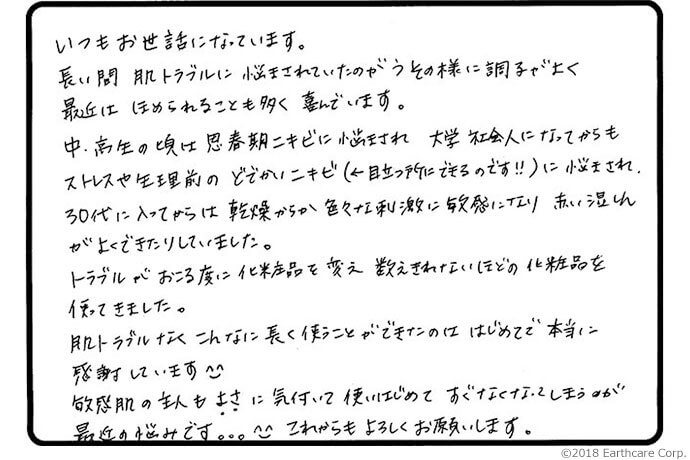 いつもお世話になっています。
長い間 肌トラブルに 悩まされていたのがうその様に調子がよく
最近は ほめられることも多く 喜んでいます。
中・高生の頃は 思春期ニキビに悩まされ 大学 社会人になってからも
ストレスや生理前の どでかいニキビ(←目立つ所にできるのです!!)に悩まされ、
30代に入ってからは 乾燥からか 色々な刺激に 敏感になり 赤い湿しん
がよくできたりしていました。
トラブルが おこる度に 化粧品を 変え 数えきれないほどの 化粧品を
使ってきました。
肌トラブルなく こんなに 長く使うことができたのは はじめてで 本当に
感謝しています^^
敏感肌の主人も よさに 気付いて 使いはじめて すぐなくなってしまうのが
最近の悩みです。。。^^ これからも よろしくお願いします。
©2018 Earthcare Corp.